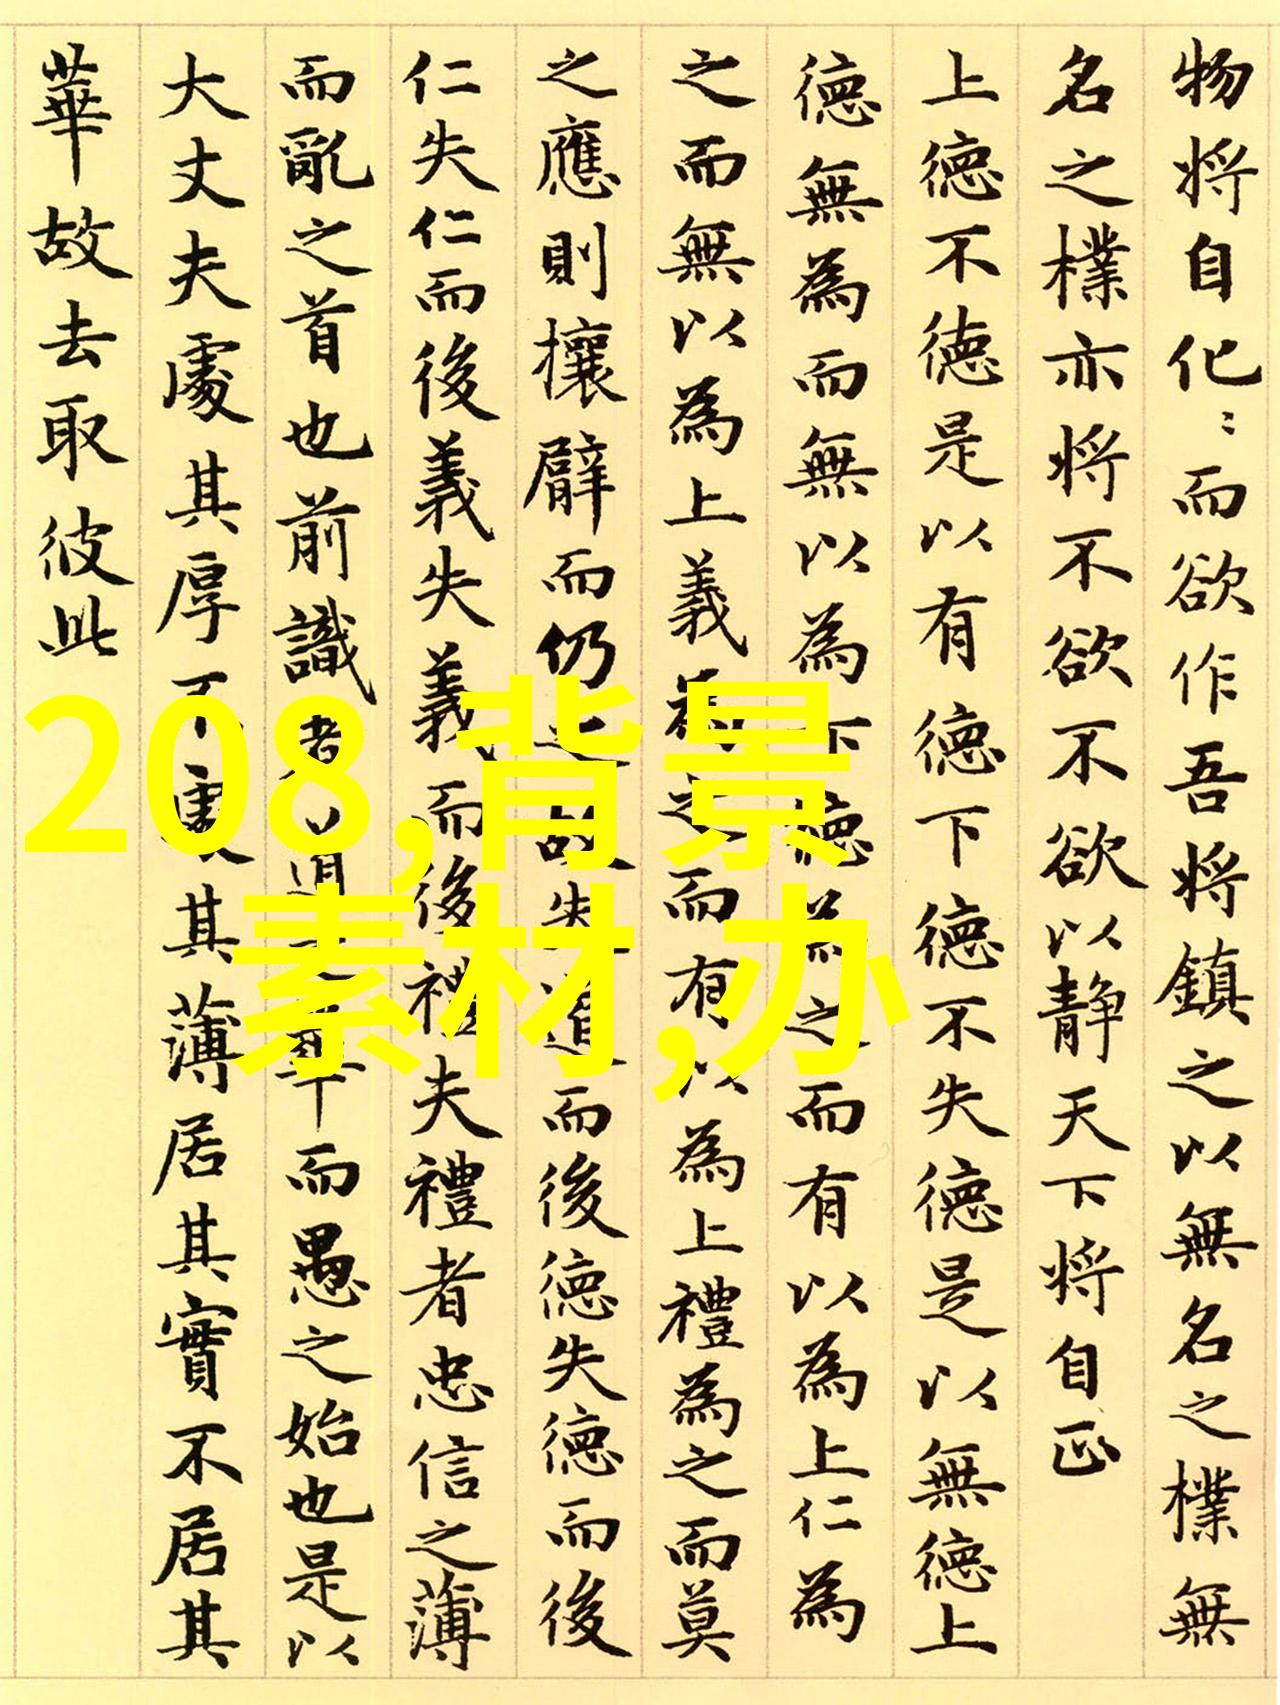 物将自化〻而欲作吾将鎮之以無名之樸無
名之樸亦将不欲不欲以静天下将自正
上德不德是以有德下德不失德是以無德上
德無為而無以為下德為之而有以為上仁為
之而無以為上義為之而有以為上禮為之而莫
之應則攘臂而仍之故失道而後德失德而後
仁失仁而後義失義而後禮夫禮者忠信之薄
而亂之首也前識者道之華而愚之始也是以
大丈夫處其厚不處其薄居其實不居其
華故去取彼此
208,背景
素材,办